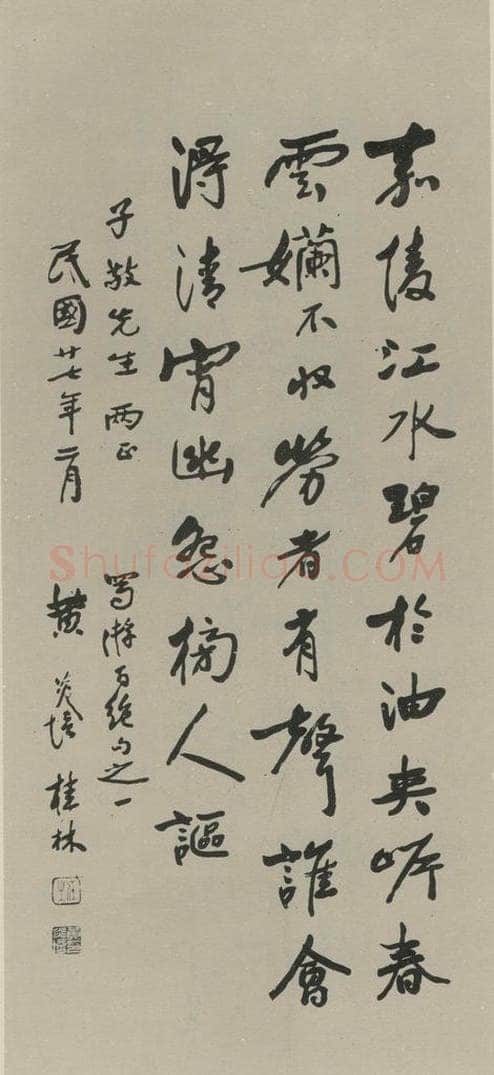 嘉陵江水碧於油夾岍春
雲嬾不收勞者有聲誰會
得清宵幽怨榜人謳
子敬先生兩正 蜀游百絕句之一
民國廿七年二月 黃炎培 桂林
Shufazilian.COM